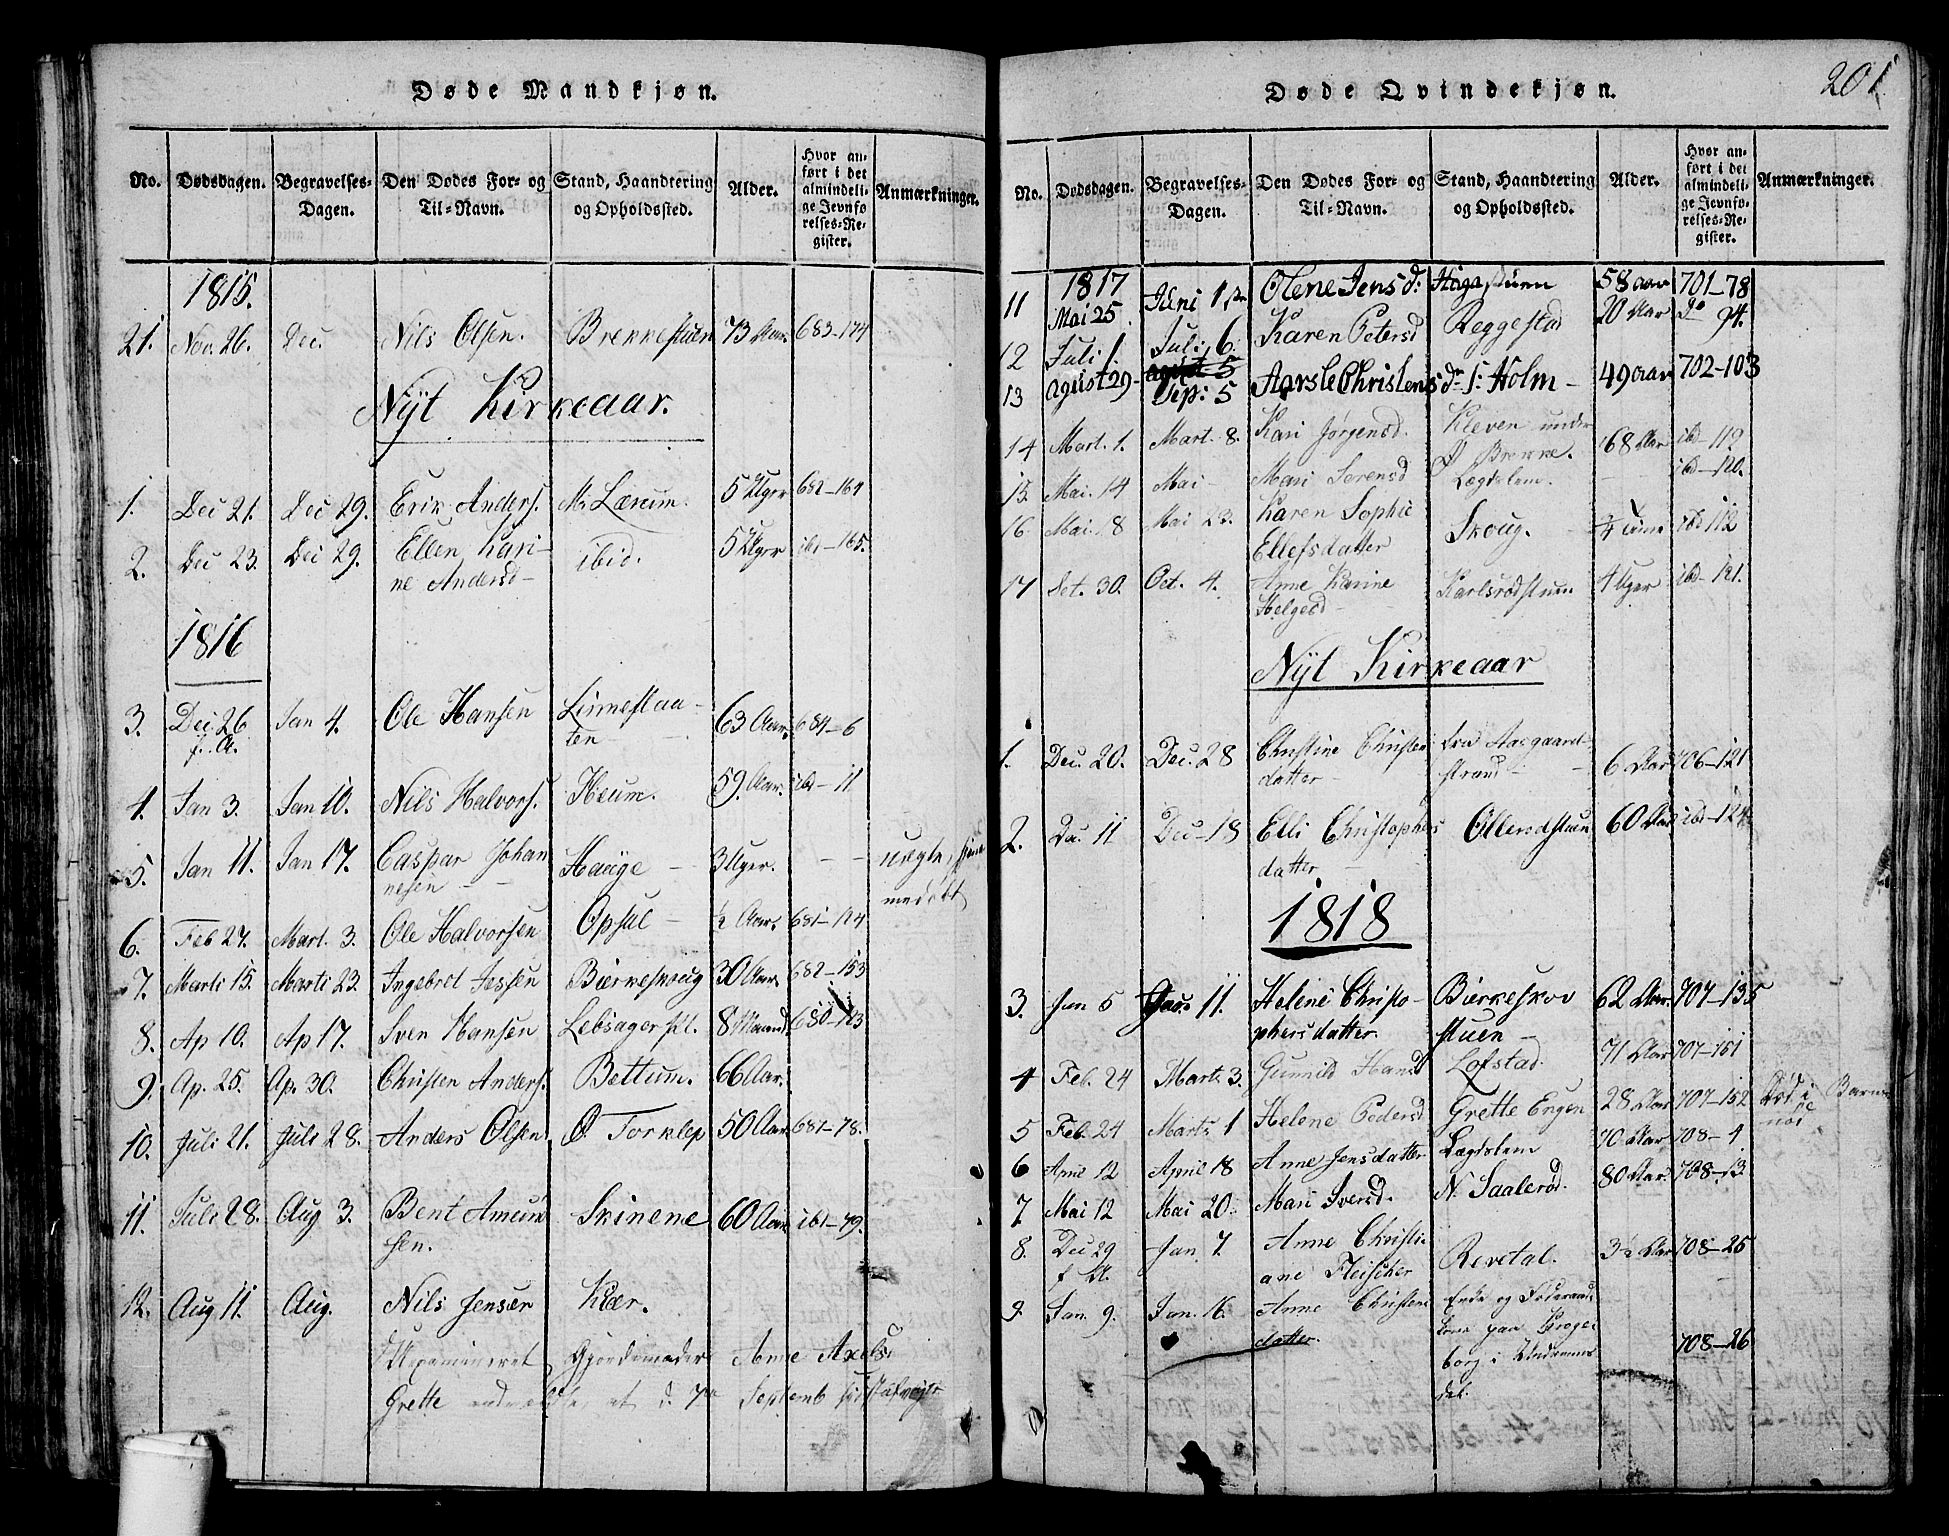 Døde Mandkjøn.
No. Dødsdagen. Begravelses-Dagen. Den Dødes For- og Til-Navn. Stand, Haandtering og Opholdssted. Alder. Hvor anført i det almindelige Jevnførelses-Register. Anmærkninger.
1815.
21. Nov. 26. Dec. Nils Olsen. Brekkestuen 73 Aar. 683-174
Nyt Kirkeaar.
1. Dec 21. Dec 29. Erik Anders. Lærum. 5 Uger 682-164
2. Dec 23. Dec 29. Ellen Kari- ibid. 5 Uger ibi-165.
ne Andersd-
1816
3. Dec. 26 Jan 4. Ole Hansen Linnestaa- 63 Aar. 684-6
f. A. ten
4. Jan 3. Jan 10. Nils Halvors. Heum. 59. Aar. ibd-11
5. Jan 11. Jan 17. Caspar Johan Hauge - 3 Uger. - - uægte,
nesen - -
6. Feb 27. Mart. 3. Ole Halvorsen Opsal - ½ Aar. 681-124
7. Marti 15. Marti 23. Ingebret Jessen Bierkeskoug 30 Aar. 682-153
8. Ap 10. Ap 17. Sven Hansen Lebsager 8 Maaned 680-123
9. Ap. 25. Ap. 30. Christen Anders. Bettum. 66 Aar.
10. Juli 21. Juli 28. Anders Olsen Ø. Torklep 50 Aar. 687-78.
11. Juli 28. Aug 3. Bent Amund Skinene 60 Aar ibi-79.
sen.
12. Aug 11. Aug. Nils Jensen Kiær.
Gjordemoder Anne Axels.
Grette at d. 7de Septemb
201
Døde Qvindekjøn.
No. Dødsdagen. Begravelses-Dagen. Den Dødes For- og Til-Navn. Stand, Haandtering og Opholdssted. Alder. Hvor anført i det almindelige Jevnførelses-Register. Anmærkninger.
1817
11 Mai 25 Juni 1ste Olene Jens d: Hagastuen 58 aar 701-78
12 Juli 1. Juli 6. Karen Petersd Reggestad 20 Aar Do 94.
13 Agust 29- Sep: 5 Aarsle Christens dr. Holm - 49 aar 702-103
14 Mart. 1. Mart. 8. Kari Jørgensd. Kleven under 68 Aar ibd-119
Ø Brekke.
15. Mai. 14 Mai - Mari Sørensd Lægdslem. ibd-120.
16 Mai. 18 Mai 23. Karen Sophie Skoug. - ibd 112
Ellefsdatter
17 Set. 30. Oct. 4. Anne Karine Karlsrødstuen 4 Uger ibd-121.
Helgesd -
Nyt Kirkeaar
1. Dec. 20. Dec. 28 Christine Christen Aasgaard- 6 Aar 706-121
datter - strand -
2. Dec. 11 Dec-18 Elli Christophers Ollerødstuen 60 Aar ibd-124
datter
1818
3. Jan 5 Jan. 11. Helene Christo- Bierkeskov 62 Aar. 707-135
phersdatter. stuen -
4 Feb. 24 Marts 3. Gunnild Hansd Lofstad. 71 Aar 707-151
5 Feb. 24 Marts 1 Helene Pedersd Grette Engen 28 Aar 707-152 Død i Barns
nød
6 April 12 April 18 Anne Jensdatter Lægdslem 70 Aar 708-4
7 Mai 12 Mai 20. Mari Iversd. N. Saalerød. 80 Aar. 708-13.
8. Dec 29 Jan 7. Anne Christi Revetal. 3½ Aar 708-25
f A. ane Fleischer
9 Jan. 9. Jan. 16. Anne Christens Enke og Føderaads
datter. kone paa Kroge
borg i Undrums 708-26
dal.